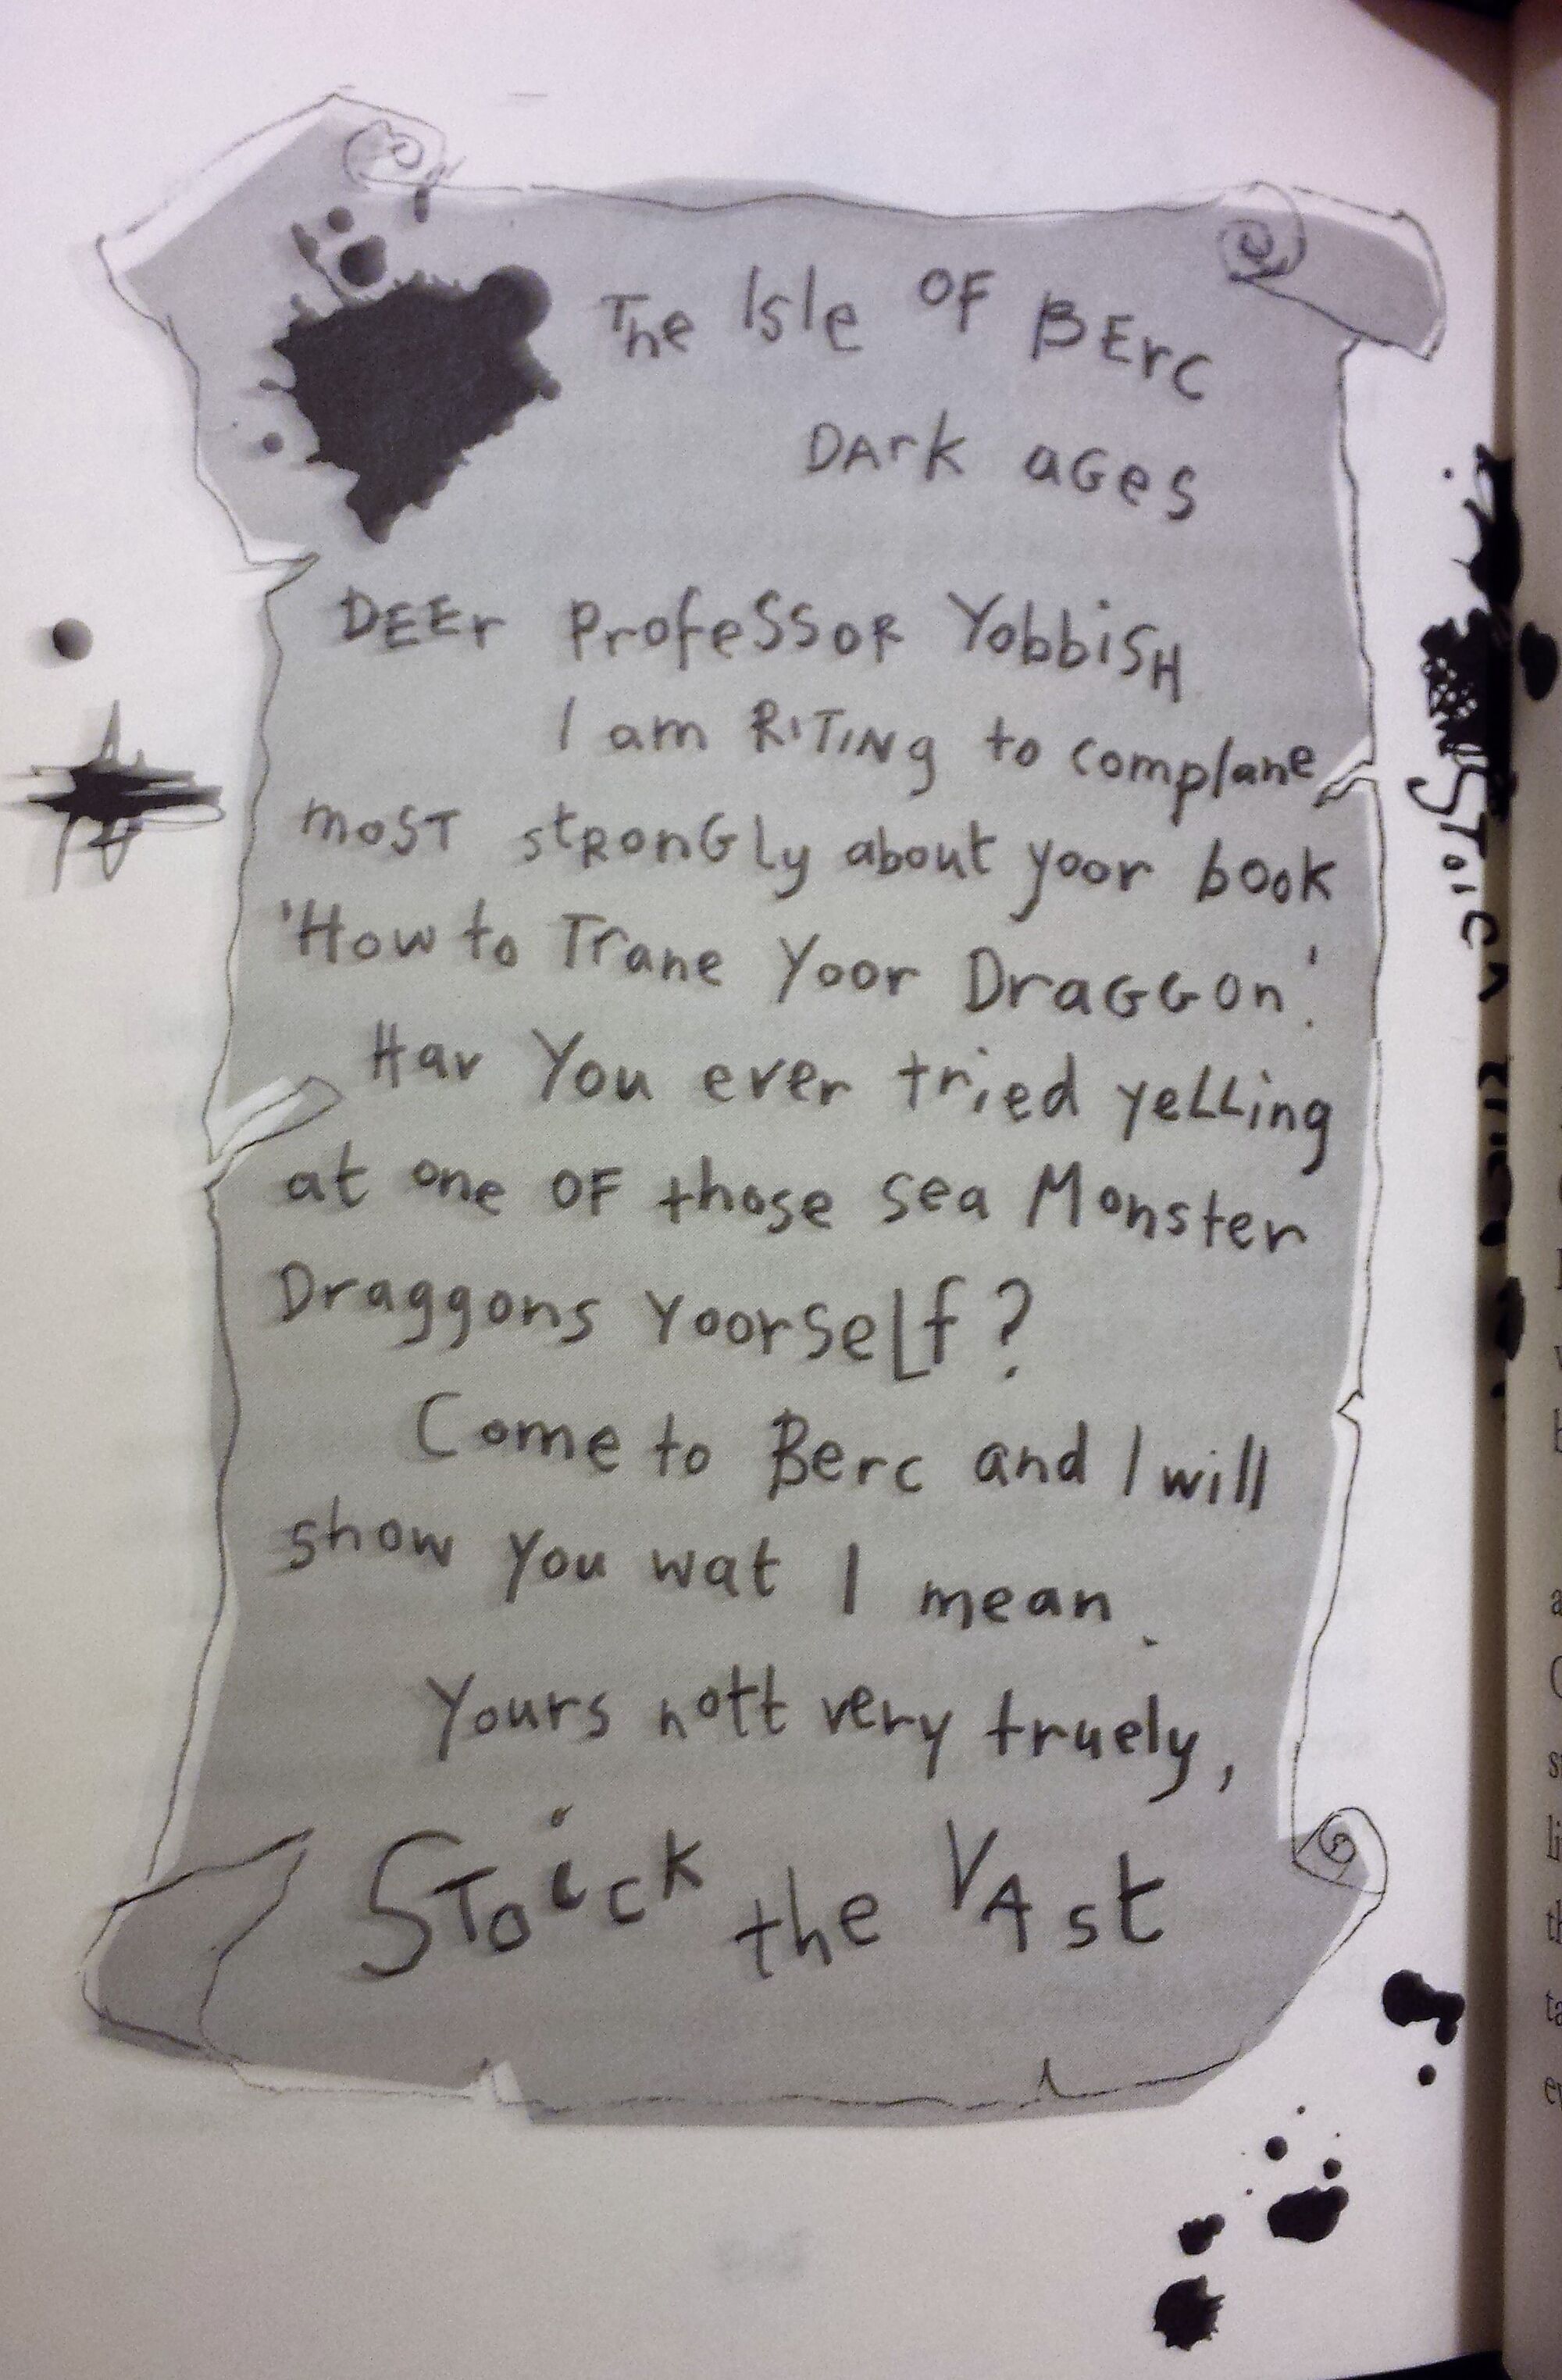 The Isle OF BErc
DArk aGes
DEEr ProfeSSoR YobbiSH
I am RiTiNg to complane
moST stRonGly about yoor book
'How to Trane Yoor DraGGon'.
Hav You ever tried yeLLing
at one OF those sea Monster
Draggons YoorseLf?
Come to Berc and I will
show you wat I mean.
Yours nott very truely,
SToick the VAst
STOIC